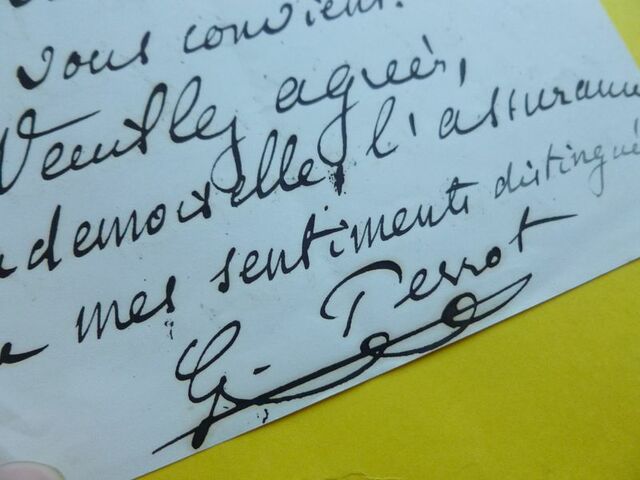 vous convient.
Veuillez agréer,
demoiselle, l'assurance
mes sentiments distingués
G. Perrot